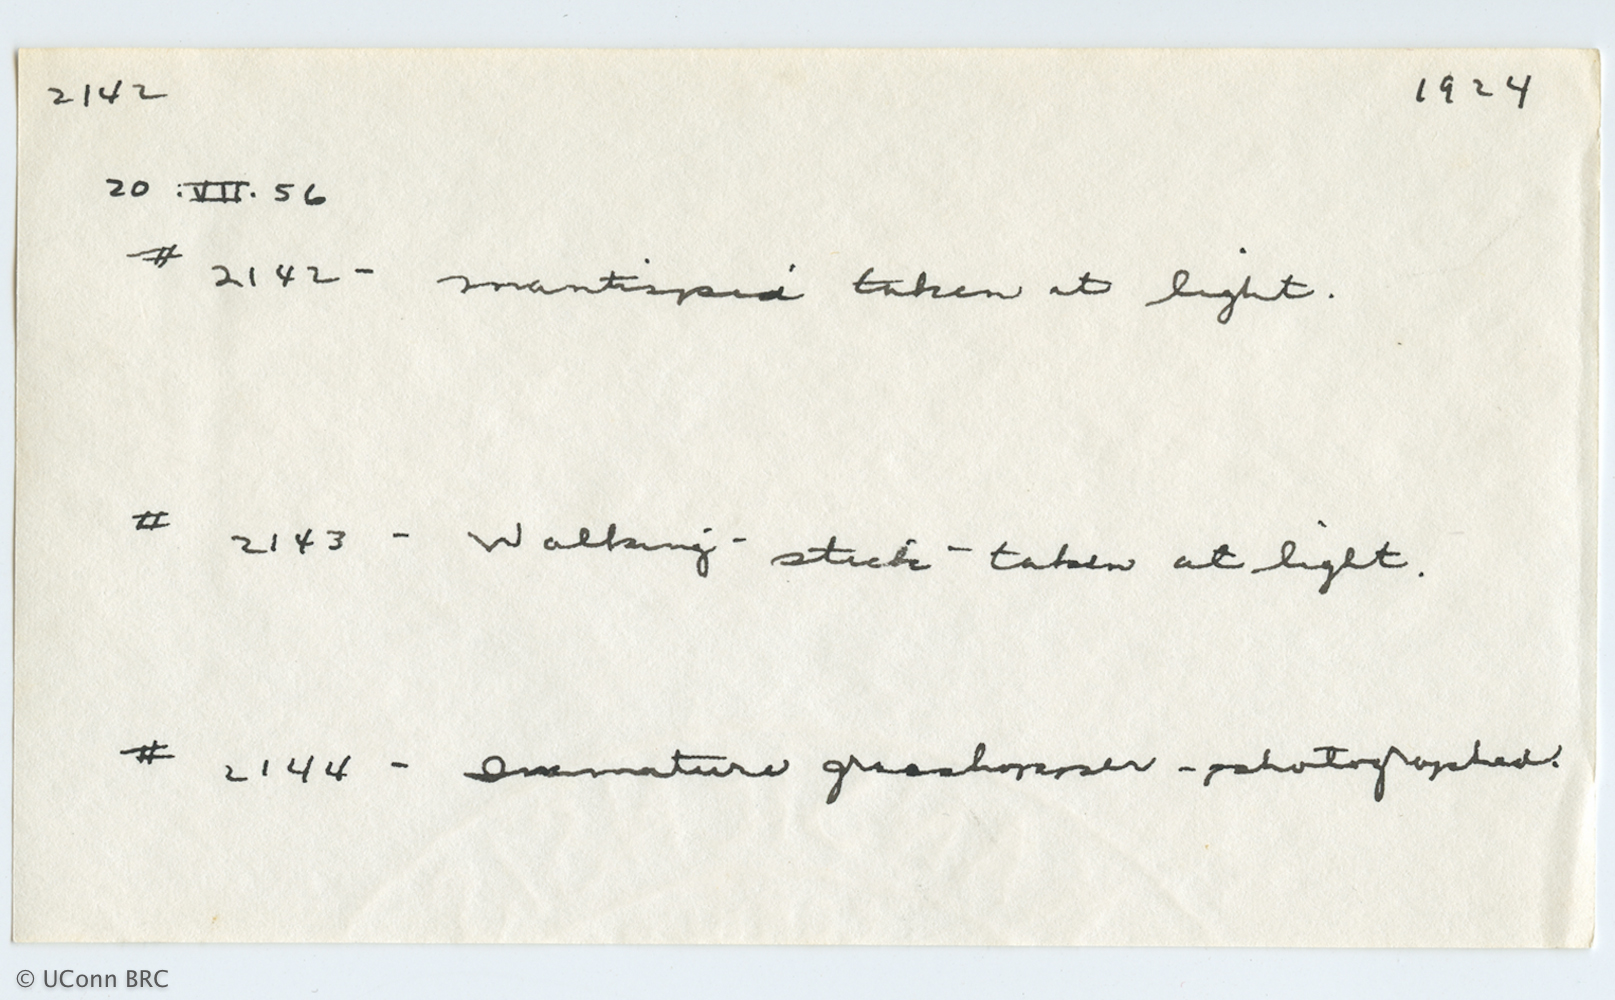 2142 1924
20 .VII. 56
# 2142 - mantispid taken at light.
# 2143 - Walking-stick - taken at light.
# 2144 - Immature grasshopper - photographed.
© UConn BRC